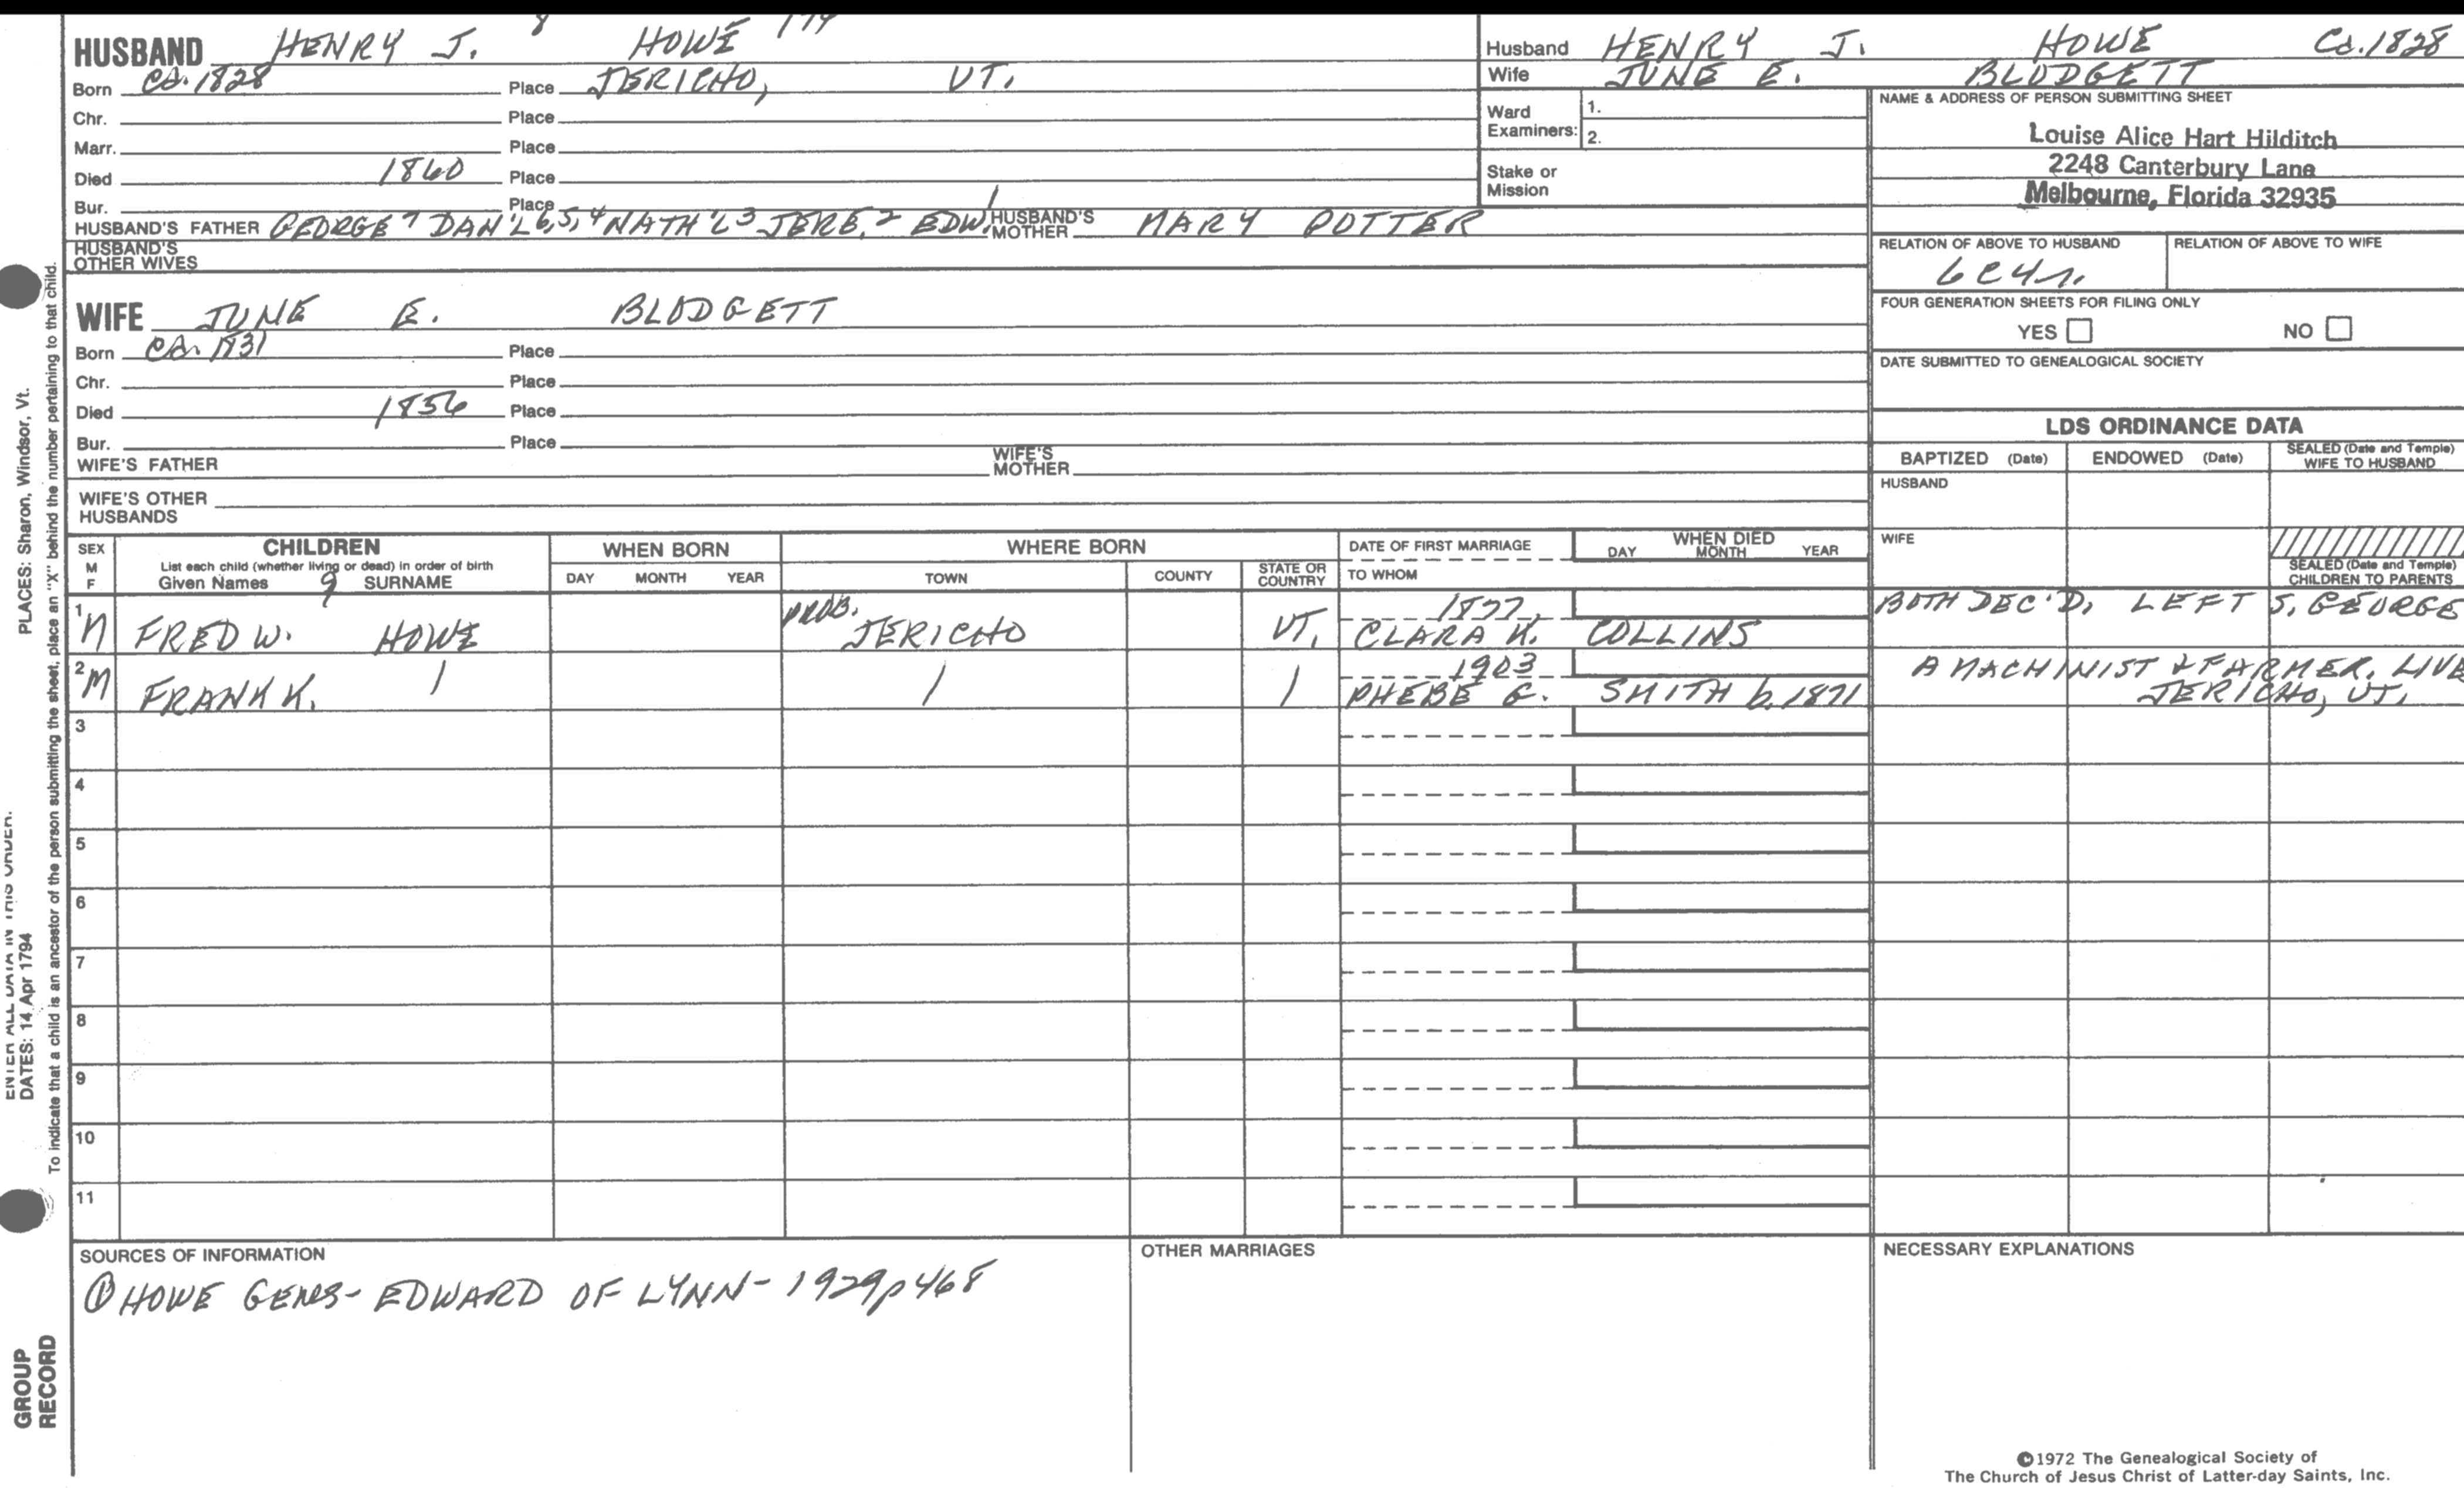 HUSBAND HENRY J. 8 HOWE 174
Born ca. 1828 Place JERICHO, VT.
Chr. Place
Marr. Place
Died 1860 Place
Bur. Place
HUSBAND'S FATHER GEORGE 7 DAN'L 6,5,4 NATH'L 3 JERE. 2 EDW. 1 HUSBAND'S MOTHER MARY POTTER
HUSBAND'S OTHER WIVES
WIFE JUNE E. BLODGETT
Born ca. 1831 Place
Chr. Place
Died 1856 Place
Bur. Place
WIFE'S FATHER WIFE'S MOTHER
WIFE'S OTHER HUSBANDS
Husband HENRY J. HOWE Ca. 1828
Wife JUNE E. BLODGETT
Ward Examiners: 1.
2.
Stake or Mission
NAME & ADDRESS OF PERSON SUBMITTING SHEET
Louise Alice Hart Hilditch
2248 Canterbury Lane
Melbourne, Florida 32935
RELATION OF ABOVE TO HUSBAND RELATION OF ABOVE TO WIFE
6C4r.
FOUR GENERATION SHEETS FOR FILING ONLY
YES NO
DATE SUBMITTED TO GENEALOGICAL SOCIETY
LDS ORDINANCE DATA
BAPTIZED (Date) ENDOWED (Date) SEALED (Date and Temple) WIFE TO HUSBAND
HUSBAND
WIFE
SEALED (Date and Temple) CHILDREN TO PARENTS
SEX M F CHILDREN WHEN BORN WHERE BORN DATE OF FIRST MARRIAGE WHEN DIED
List each child (whether living or dead) in order of birth
Given Names 9 SURNAME DAY MONTH YEAR TOWN COUNTY STATE OR COUNTRY TO WHOM DAY MONTH YEAR
1 M FRED W. HOWE PROB. JERICHO VT. 1877, CLARA K. COLLINS BOTH DEC'D, LEFT S, GEORGE
2 M FRANK K. / / / 1903 PHEBE G. SMITH b. 1871 A MACHINIST & FARMER. LIVE JERICHO, VT.
3
4
5
6
7
8
9
10
11
SOURCES OF INFORMATION
① HOWE GENS- EDWARD OF LYNN- 1929 p 468
OTHER MARRIAGES
NECESSARY EXPLANATIONS
©1972 The Genealogical Society of
The Church of Jesus Christ of Latter-day Saints, Inc.
PLACES: Sharon, Windsor, Vt.
ENTER ALL DATA IN THIS ORDER.
DATES: 14 Apr 1794
To indicate that a child is an ancestor of the person submitting the sheet, place an "X" behind the number pertaining to that child.
GROUP
RECORD